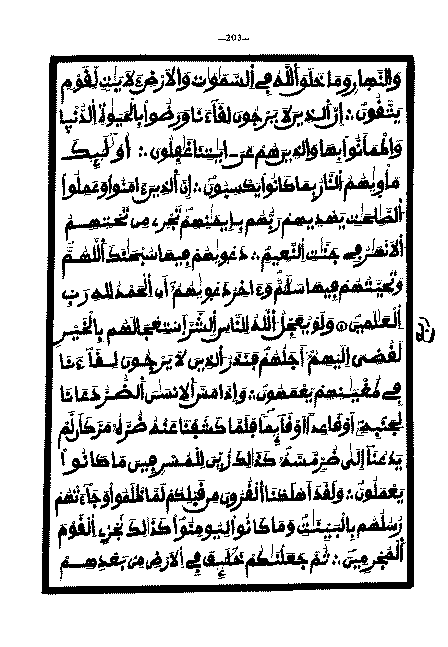 —203—
والنهار وما خلق الله في السموات والارض لايت لقوم
يتقون ∴ ان الذين لا يرجون لقاءنا ورضوا بالحيوة الدنيا
واطمأنوا بها والذين هم عن ايتنا غفلون ∴ اوليك
ماويهم النار بما كانوا يكسبون ∴ ان الذين ءامنوا وعملوا
الصلحت يهديهم ربهم بايمنهم تجري من تحتهم
الانهر في جنت النعيم ∴ دعويهم فيها سبحنك اللهم
وتحيتهم فيها سلم وءاخر دعويهم أن الحمد لله رب
العلمين ۞ ولو يعجل الله للناس الشر استعجالهم بالخير
لقضي اليهم أجلهم فنذر الذين لا يرجون لقاءنا
في طغينهم يعمهون ∴ واذا مس الانسن الضر دعانا
لجنبه أو قاعدا أو قايما فلما كشفنا عنه ضره مر كأن لم
يدعنا إلى ضر مسه كذلك زين للمسرفين ما كانوا
يعملون ∴ ولقد أهلكنا القرون من قبلكم لما ظلموا وجاءتهم
رسلهم بالبينت وما كانوا ليومنوا كذلك نجزي القوم
المجرمين ∴ ثم جعلنكم خليف في الارض من بعدهم